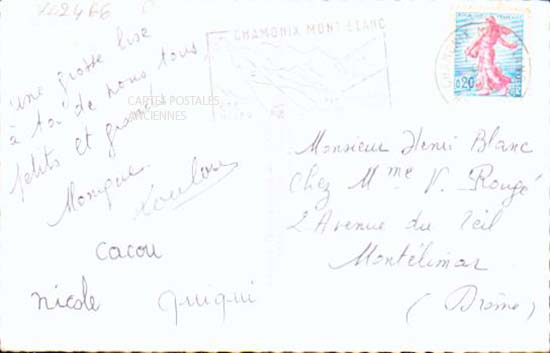 242466
une grosse bise
à toi de nous tous,
petits et grands
Monique
Loulou
cacou
nicole quiqui
CHAMONIX MONT-BLANC
CARTES POSTALES
ANCIENNES
0,20
Monsieur Henri Blanc
Chez Mme V. Rougé
2 Avenue du Teil
Montélimar
(Drôme)